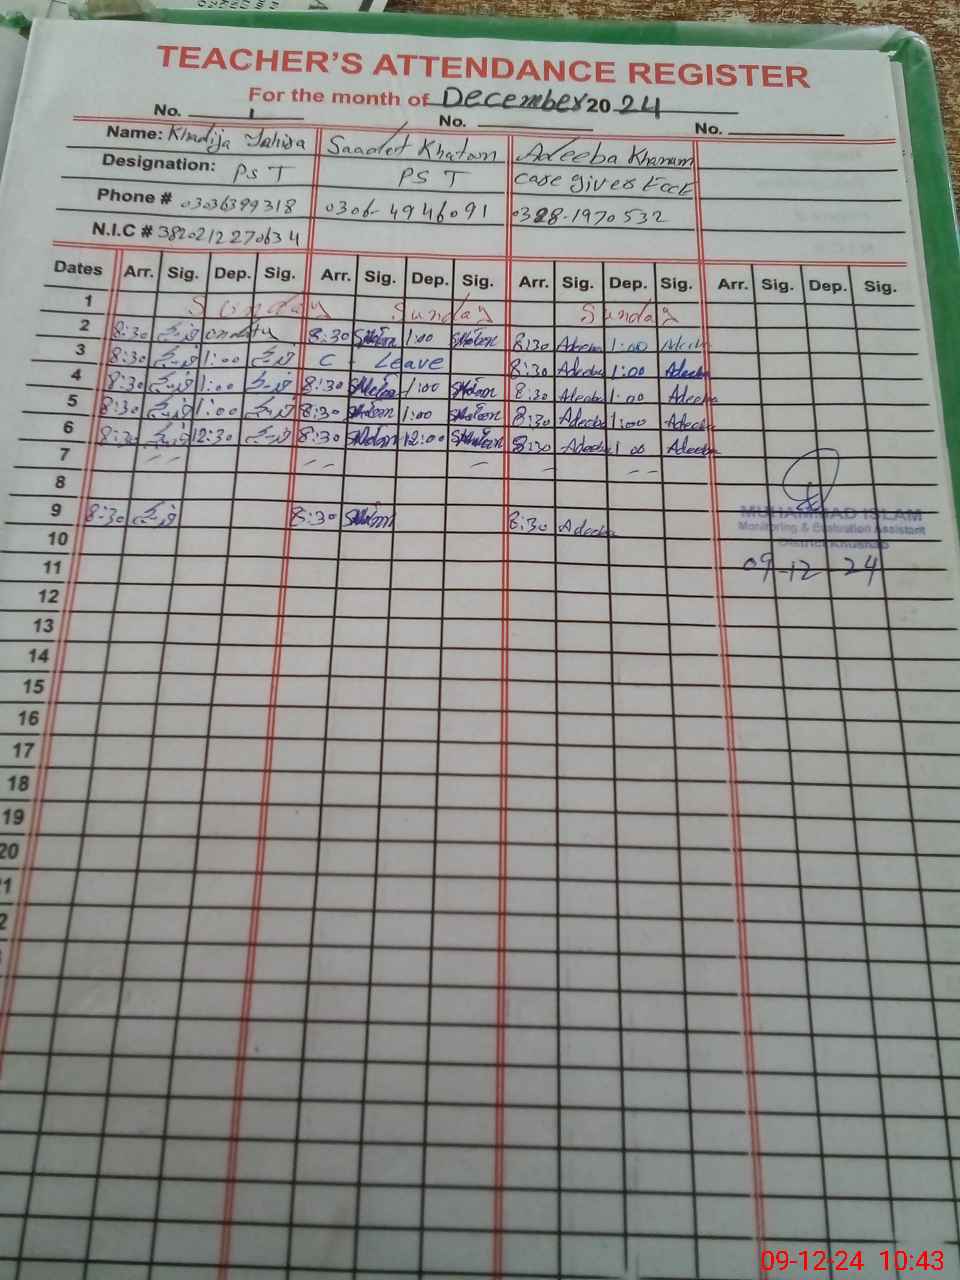 TEACHER'S ATTENDANCE REGISTER
For the month of December 20 24
No. 1 No. No.
Name: Khadija Tahira Saadet Khatoon Adeeba Khanum
Designation: PST PST care givers ECCE
Phone # 03036399318 0306-4946091 0328-1970532
N.I.C # 3820212270634
Dates Arr. Sig. Dep. Sig. Arr. Sig. Dep. Sig. Arr. Sig. Dep. Sig. Arr. Sig. Dep. Sig.
1 Sunday Sunday Sunday
2 8:30 onduty 8:30 1:00 8:30 Adeeba 1:00 Adeeba
3 8:30 1:00 C - Leave 8:30 Adeeba 1:00 Adeeba
4 8:30 1:00 8:30 1:00 8:30 Adeeba 1:00 Adeeba
5 8:30 1:00 8:30 1:00 8:30 Adeeba 1:00 Adeeba
6 8:30 12:30 8:30 12:00 8:30 Adeeba 1 00 Adeeba
7
8
9 8:30 8:30 8:30 Adeeba
MUHAMMAD ISLAM
Monitoring & Evaluation Assistant
District Khushab
10
09-12 24
11
12
13
14
15
16
17
18
19
20
1
2
09-12-24 10:43